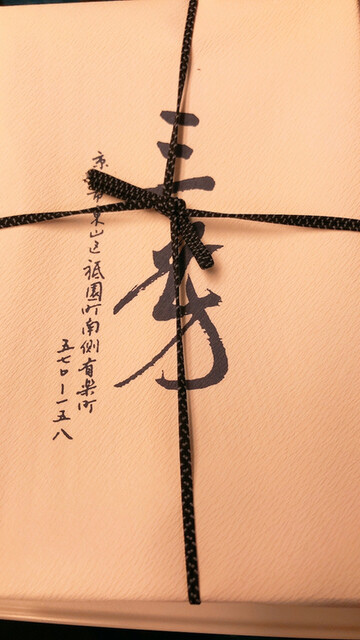 三芳
京都市東山区祇園町南側有楽町
五七〇ー一五八